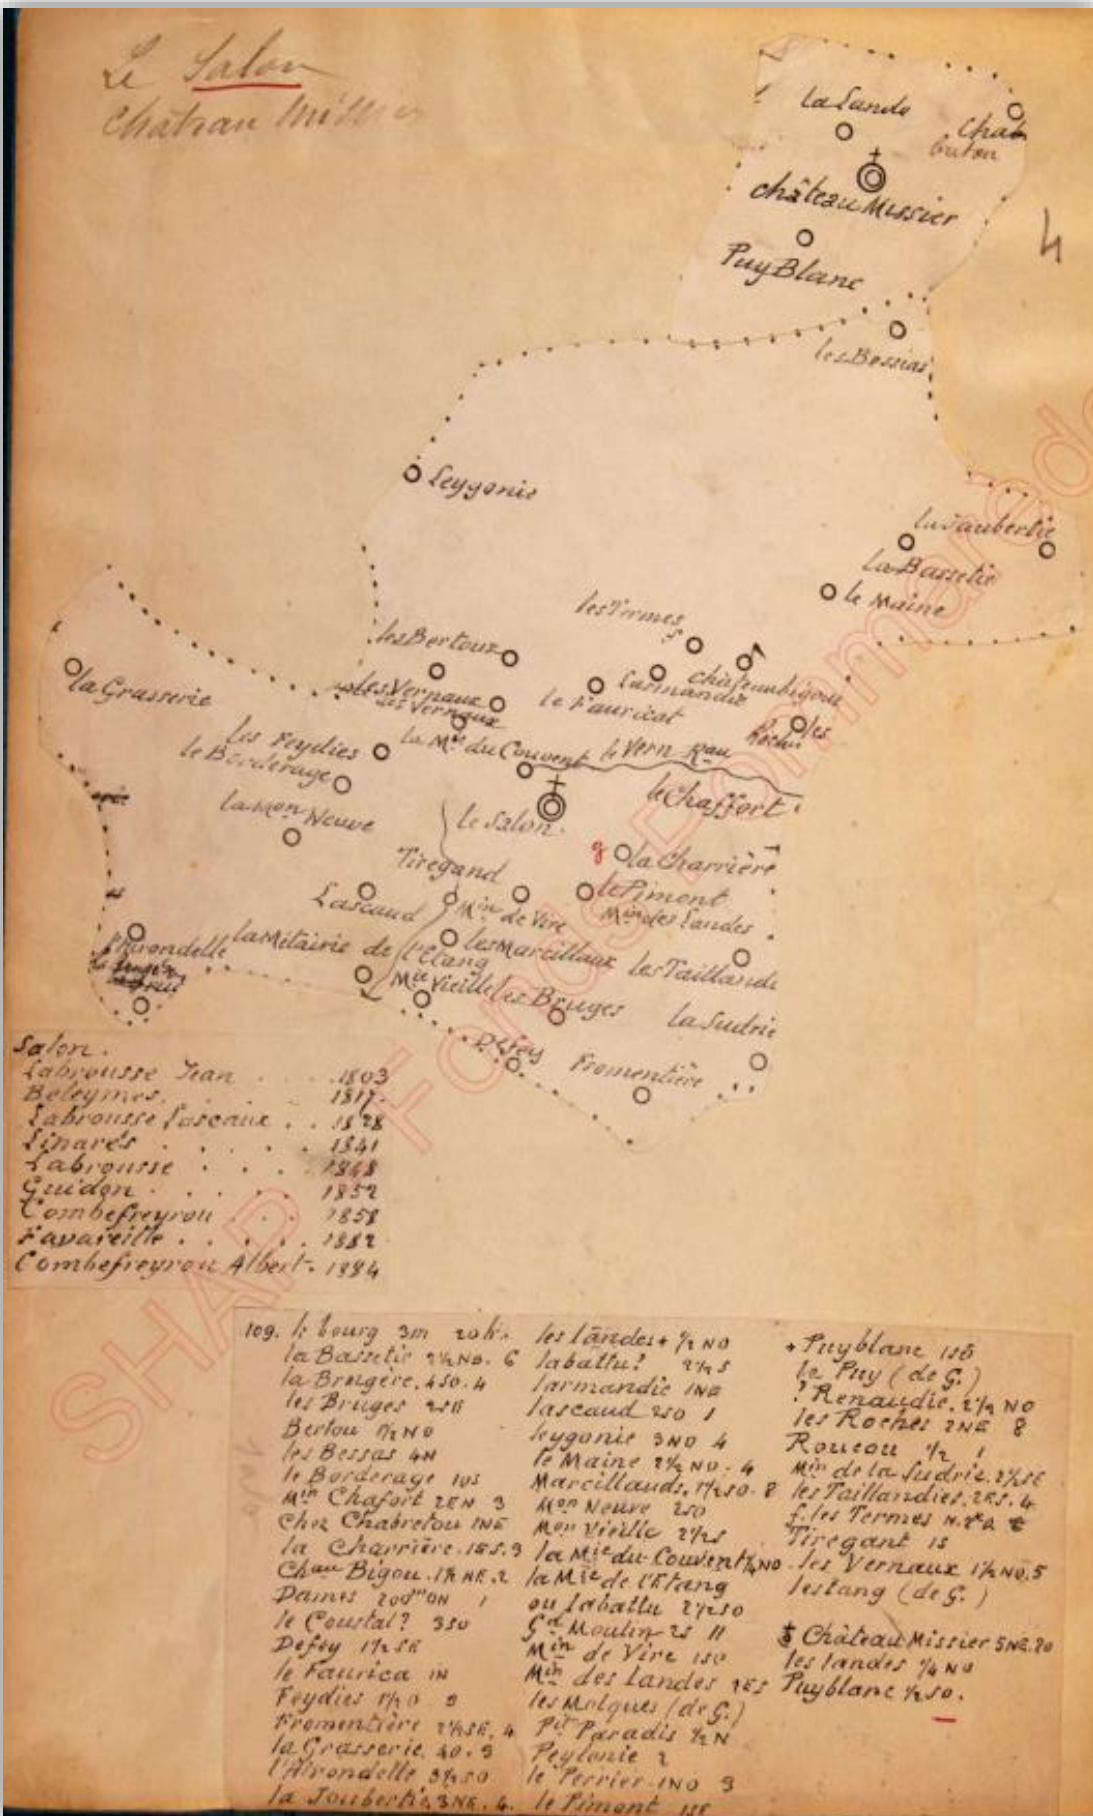 Le Salon
Château Missier
la Lande
Chab
4
château Missier
Puy Blanc
les Bessias
Leygonie
la Jaubertie
la Bassetie
le Maine
les Termes
les Bertoux
la Grasserie
les Vernaux
les Vernaux
le Fauricat
Larmandie
chateaubigou
les
Roches
les Feydies
la Mie du Couvent
le Vern Rau
le Borderage
la Mon Neuve
le Salon.
le Chaffort
g
la Charrière
Tiregand
Lascaud
le Pimont
Min de Vire
Min des Landes
l'Hirondelle
la Métairie de l'étang
les Marcillaux
les Taillands
Mie Vieille
les Bruges
la Sudrie
Defey
Fromentière
Salon.
Labrousse Jean . . . 1803
Beleymes. . . . 1817.
Labrousse Lascaux . . 1828
Linarès . . . . . 1841
Labrousse . . . . 1848
Guidon . . . . . 1852
Combefreyrou . . . 1858
Favareille . . . . . 1882
Combefreyrou Albert. 1884
109. le bourg 3m 20h.
la Bassetie 2½NO. 6
la Brugère. 4SO. 4
les Bruges 2SE
Bertou ½NO
les Bessas 4N
le Borderage 1OS
Min Chafort 2EN 3
Chez Chabretou 1NE
la Charrière. 1ES. 3
Chau Bigou. 1½NE. 2
Dames 200m ON 1
le Coustal? 3SO
Defey 1½SE
le Faurica 1N
Feydies 1½O 9
Fromentière 2½SE. 4
la Grasserie. 4O. 9
l'Hirondelle 3½SO
la Joubertie. 3NE. 4.
les landes + ½NO
labattu? 2½S
larmandie 1NE
lascaud 2SO 1
leygonie 3NO 4
le Maine 2½NO. 4
Marcillauds. 1½SO. 8
Mon Neuve 2SO
Mon Vieille 2½S
la Mie du Couvent ¼NO
la Mie de l'Etang
ou labattu 2½SO
Gd Moulin 2S 11
Min de Vire 1SO
Min des Landes 2ES
les Molques (de G.)
Pit Paradis ½N
Peylonie 2
le Perrier. 1NO 3
le Pimont 1SE
+ Puyblanc 1SO
le Puy (de G.)
? Renaudie. 2½NO
les Roches 2NE 8
Roucou ½ 1
Min de la Sudrie. 2½SE
les Taillandies. 2ES. 4
f. les Termes
Tiregant 1S
les Vernaux 1½NO. 5
lestang (de G.)
Château Missier 5NE. 20
les landes ¼NO
Puyblanc ½SO.
SHAP Fonds Pommarède